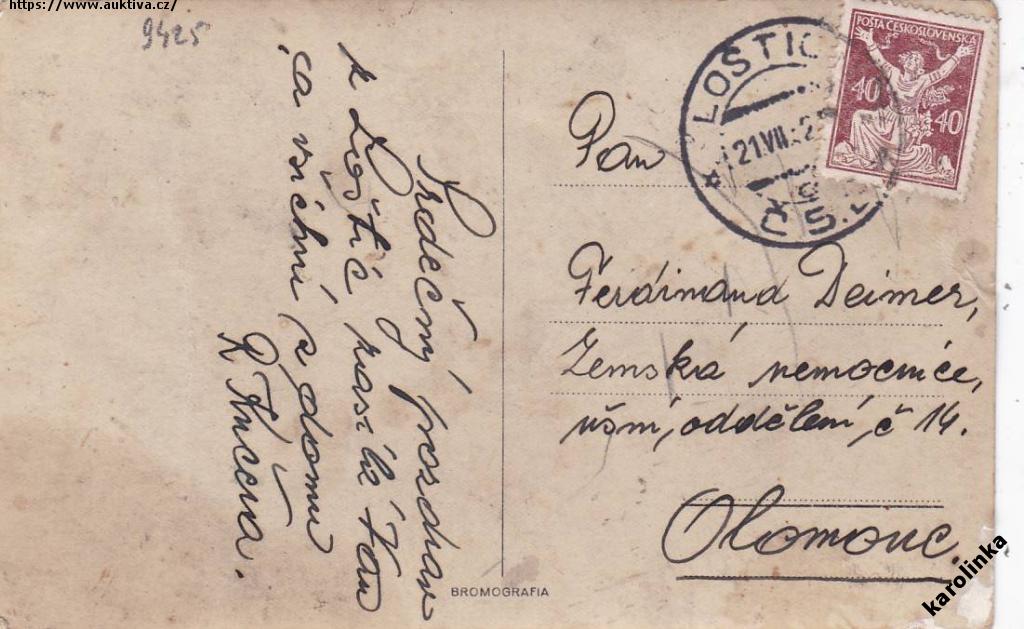 https://www.auktiva.cz/
9425
Srdečný pozdrav
z Loštic zasílá Vám
a všichni z domu
R
LOŠTIC
21.VII.2
Č.S.
POŠTA ČESKOSLOVENSKÁ
40 40
Pan
Ferdinand Deimer,
Zemská nemocnice,
ušní, oddělení, č 14.
Olomouc.
BROMOGRAFIA
karolinka